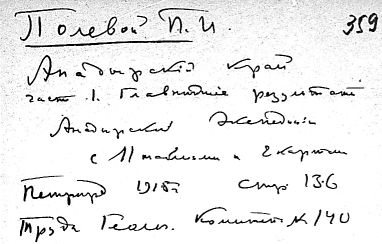 Полевой П. И. 359
Анадырский край
часть I. Главнейшие результаты
Анадырской экспедиции
с 11 таблицами и 2 картами
Петроград 1915 г. стр. 136
Труды Геолог. Комитета № 140